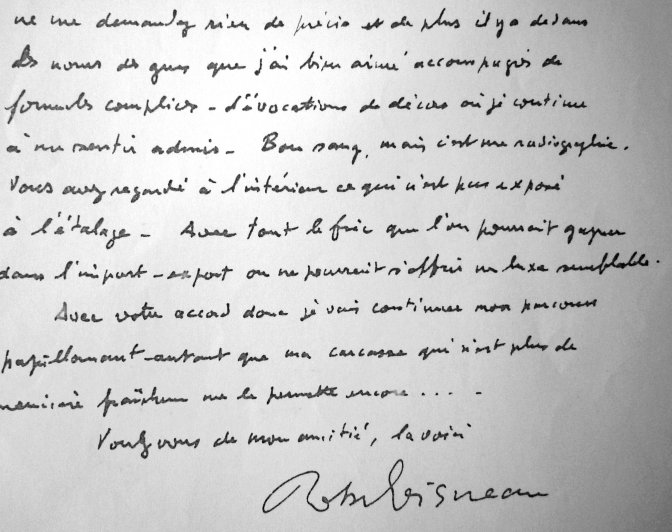 ne me demandez rien de précis et de plus il y a dedans
des noms de gens que j'ai bien aimé accompagnés de
formules complices - d'évocations de décors où je continue
à me sentir admis - Bon sang, mais c'est une radiographie.
Vous avez regardé à l'intérieur ce qui n'est pas exposé
à l'étalage - Avec tout le fric que l'on pourrait gagner
dans l'import-export on ne pourrait s'offrir un luxe semblable.
Avec votre accord donc je vais continuer mon parcours
papillonnant autant que ma carcasse qui n'est plus de
première fraîcheur me le permette encore .... -
Voulez vous de mon amitié, la voici
Robert Doisneau